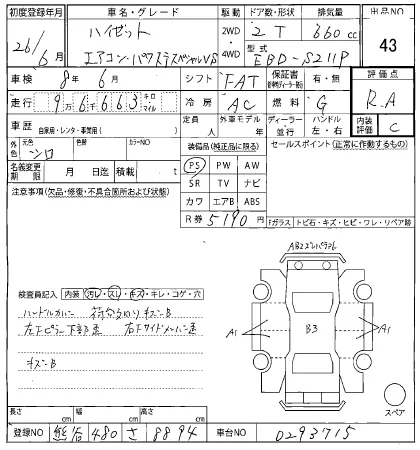 初度登録年月 車名・グレード 駆動 ドア数・形状 排気量 出品NO
26/6月 ハイゼット 2WD・4WD 2 T 660 cc 43
エアコン・パワステスペシャルVS 型式 EBD-S211P
車検 8年 6月 シフト FAT 保証書 有・無 評価点
走行 9万6千663 キロ マイル 冷房 AC 燃料 G R.A
車歴 自家用・レンタ・事業用( ) 定員 人 外車モデル 年 ディーラー 並行 ハンドル 左・右 内装評価 C
外色 元色 シロ 色替 カラーNO 装備品(純正品に限る) セールスポイント(正常に作動するもの)
名義変更期限 月 日迄 積載 t PS PW AW
注意事項(欠品・修復・不具合箇所および状態) SR TV ナビ
カワ エアB ABS
R券 5190円 Fガラス トビ石・キズ・ヒビ・ワレ・リペア跡
検査員記入 内装 汚レ・スレ・キズ・キレ・コゲ・穴
ハンドルカバー 荷台 キズB
左下 右下サイドメンバー
キズB
A1 B3 A1
スペア
長さ cm 幅 cm 高さ cm
登録NO 熊谷 480 さ 8894 車台NO 0293715